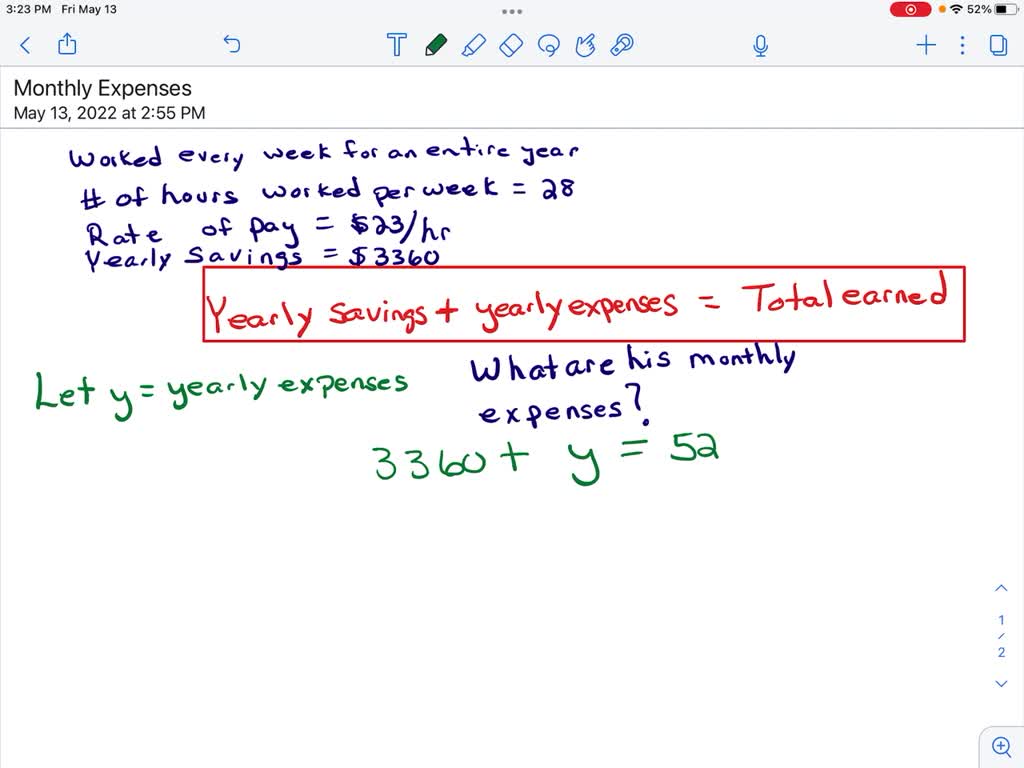 3:23 PM Fri May 13
52%
T
Monthly Expenses
May 13, 2022 at 2:55 PM
Worked every week for an entire year
# of hours worked per week = 28
Rate of pay = $23/hr
Yearly Savings = $3360
Yearly savings + yearly expenses = Total earned
Let y = yearly expenses
What are his monthly
expenses?
3360 + y = 52
1
/
2